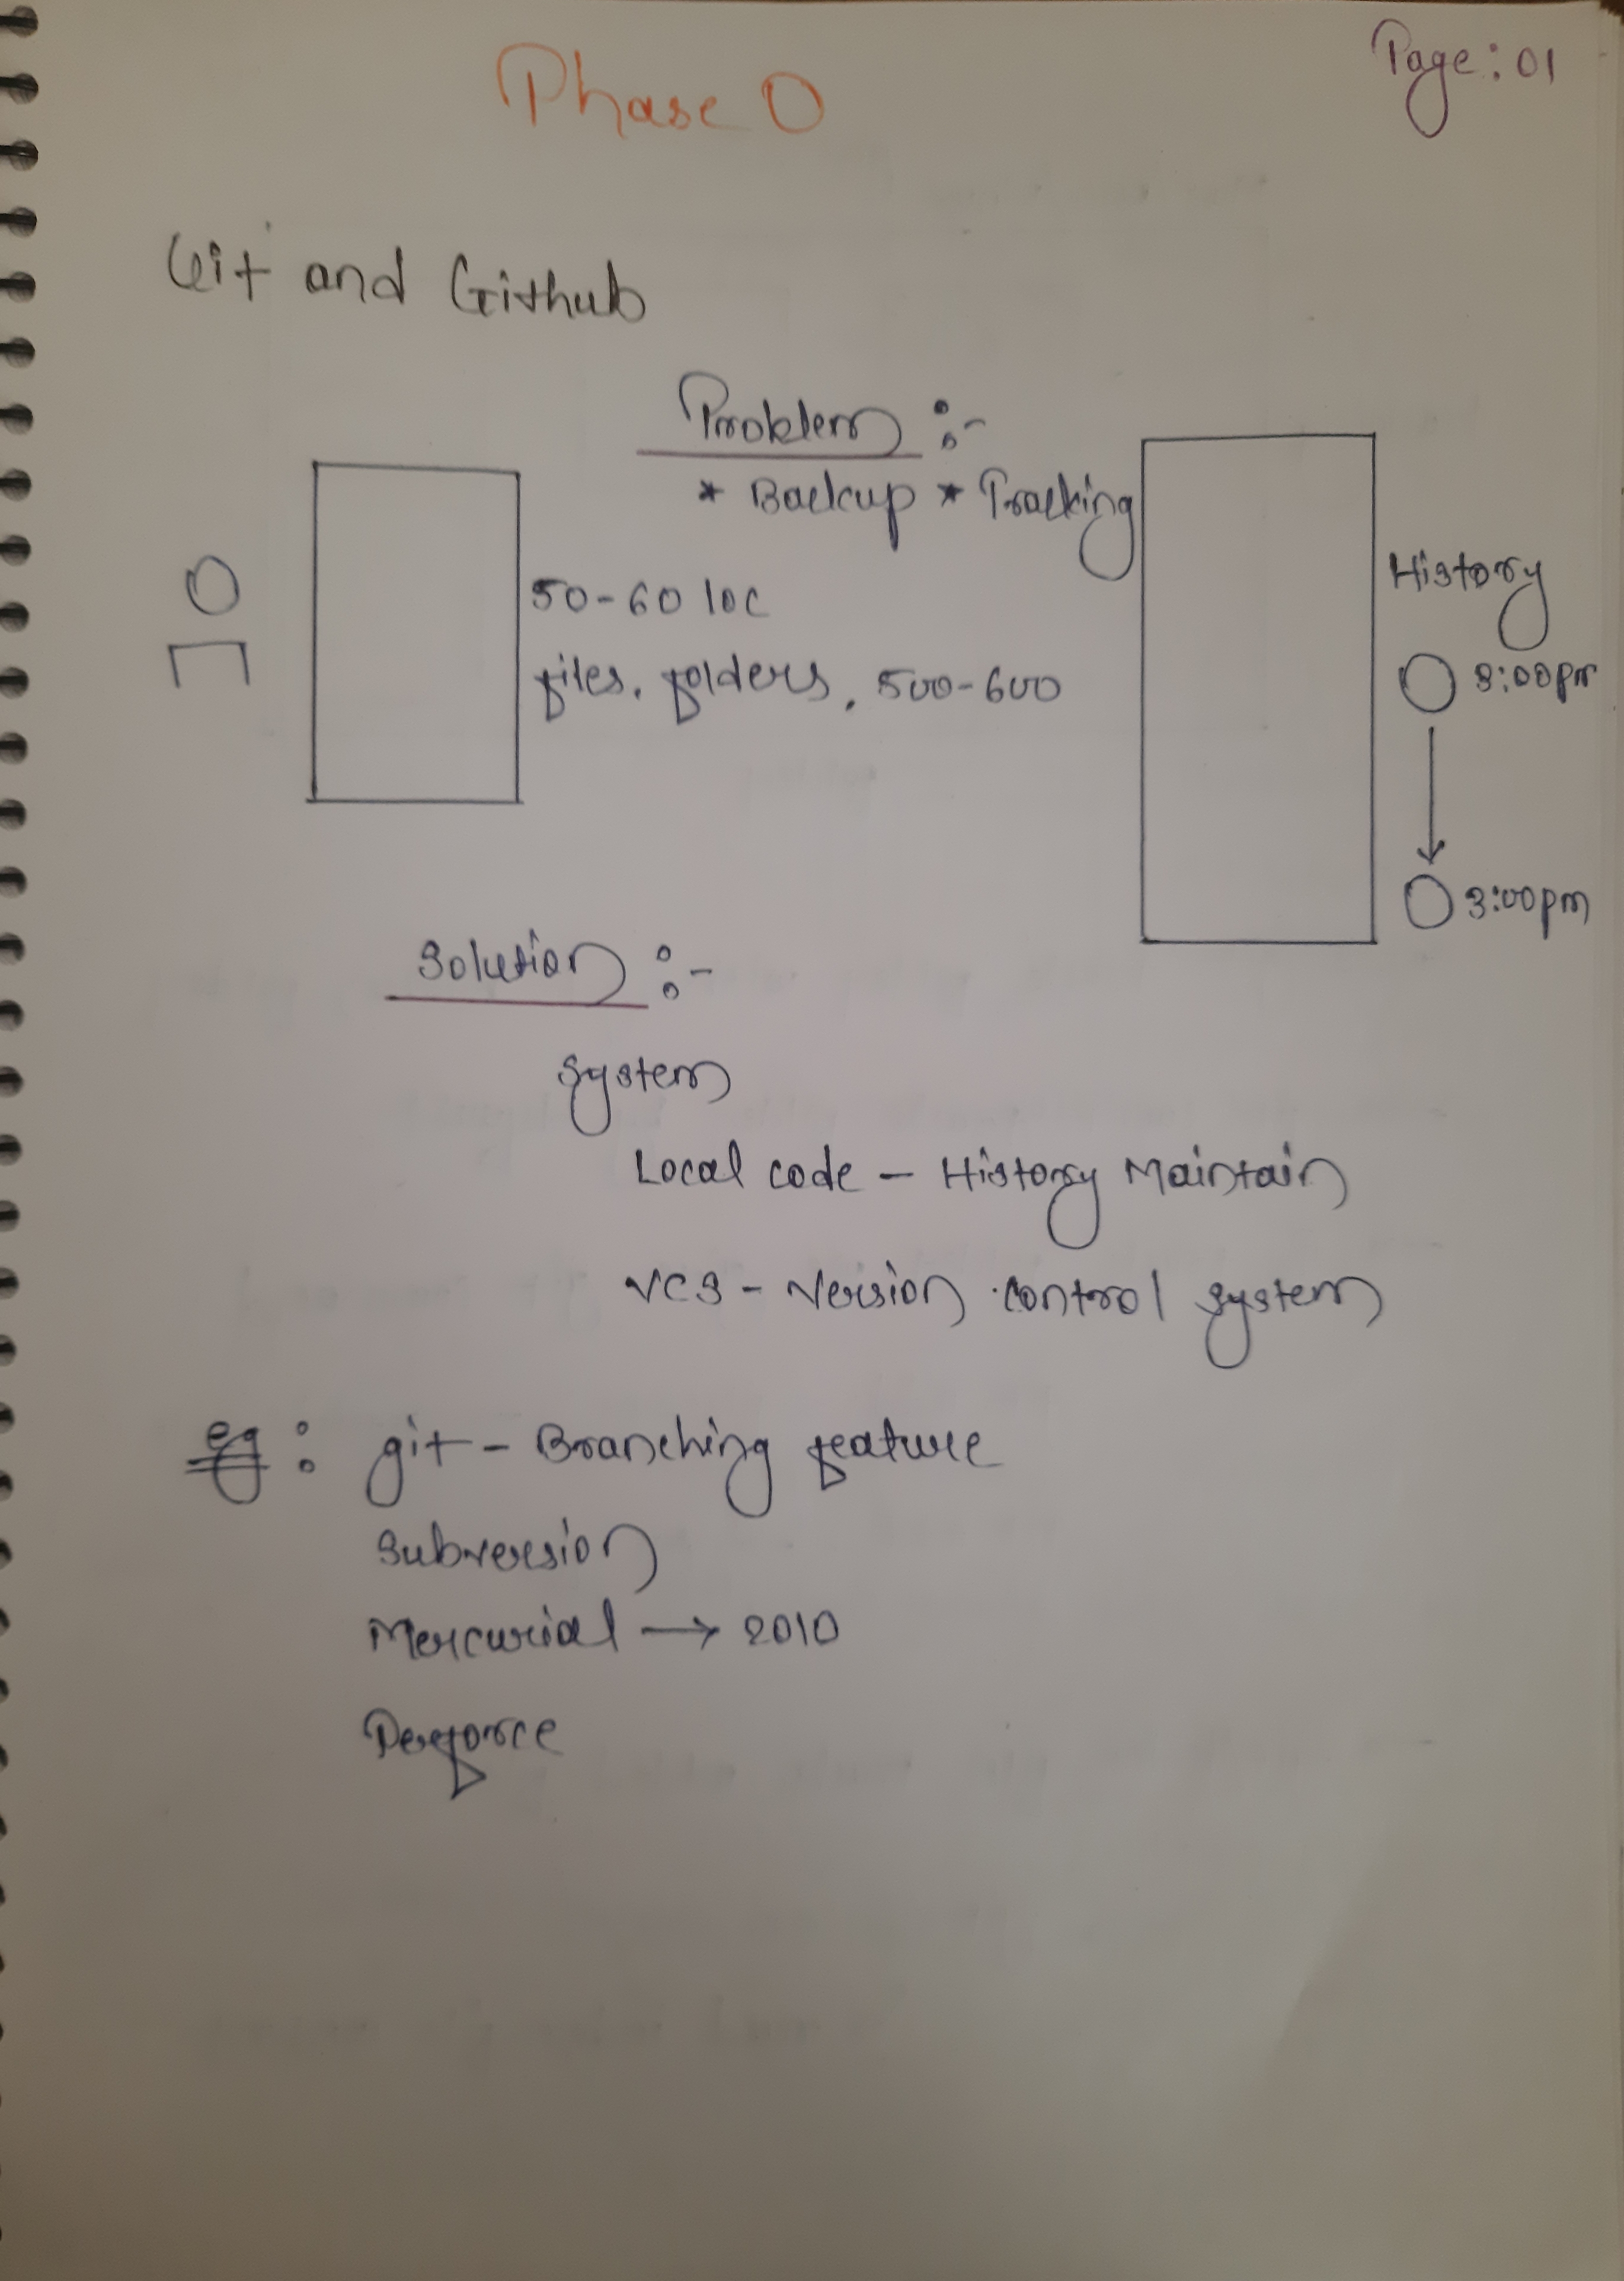 Phase 0
Page: 01
Git and Github
Problem :-
* Backup * Tracking
50-60 loc
files, folders, 500-600
History
8:00pm
3:00pm
Solution :-
System
Local code - History Maintain
VCS - Version control system
eg : git - Branching feature
Subversion
Mercurial → 2010
Perforce